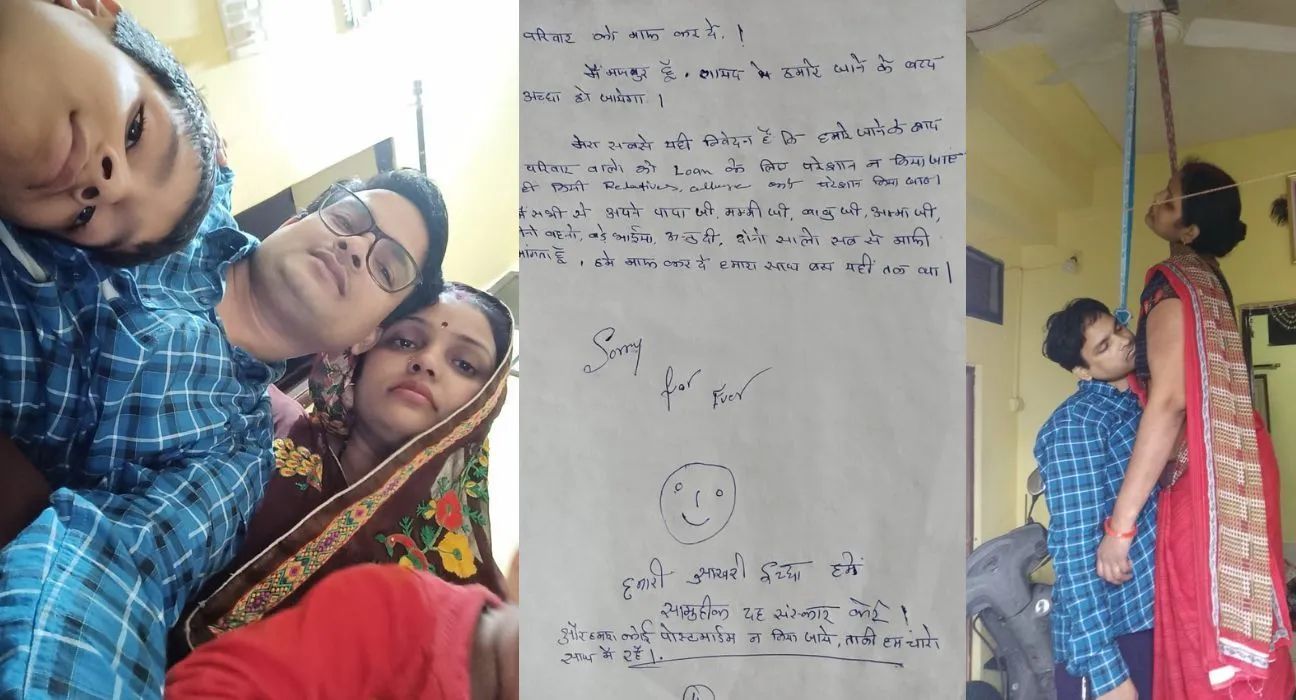 परिवार को माफ कर दें. !
मैं मजबुर हूँ. शायद हमारे जाने के बाद
अच्छा हो जायेगा |
मेरा सबसे यही निवेदन है कि हमारे जाने के बाद
परिवार वालो को Loan के लिए परेशान न किया जाए
किसी Relatives, परेशान किया जाए|
सभी से अपने पापा जी, मम्मी जी, बाबु जी, अम्मा जी,
बहनो, बड़े भाईया, दोनो सालो सब से माफी
मांगता हूँ. हमे माफ कर दें हमारा साथ बस यहीं तक था |
Sorry
for Ever
हमारी आखरी ईच्छा हमें
सामुहीक दाह संस्कार करें !
कोई पोस्टमार्डम न किया जाये, ताकी हम चारो
साथ में रहें |.